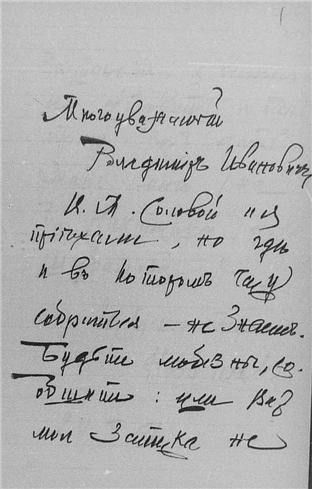 Многоуважаемый
Владимiръ Ивановичъ,
К. А. Соловой и я
прiѣхали, но гдѣ
и въ которомъ часу
собраться – не знаемъ.
Будьте любезны, со-
общите: или Вас
моя записка не